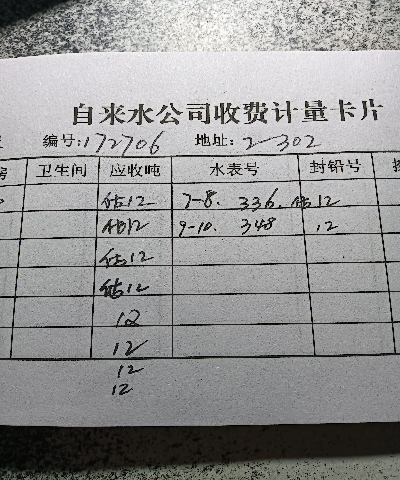 自来水公司收费计量卡片
编号:172706 地址:2-302
房 卫生间 应收吨 水表号 封铅号
估12 7-8. 336. 估12
估12 9-10. 348 12
估12
估12
12
12
12
12